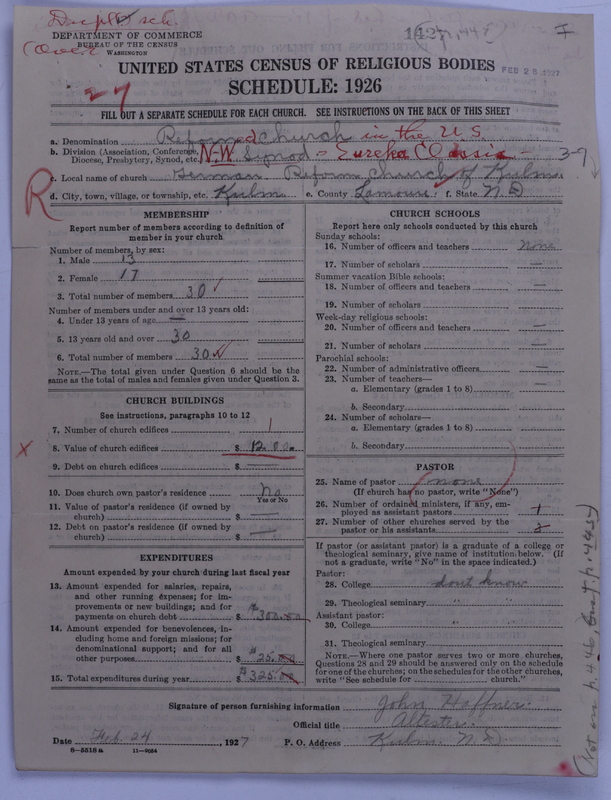 Dupl sch.
DEPARTMENT OF COMMERCE
BUREAU OF THE CENSUS
WASHINGTON
Over
FEB 28 1927
UNITED STATES CENSUS OF RELIGIOUS BODIES
SCHEDULE: 1926
27
FILL OUT A SEPARATE SCHEDULE FOR EACH CHURCH. SEE INSTRUCTIONS ON THE BACK OF THIS SHEET
a. Denomination Reformed Church in the U.S.
b. Division (Association, Conference, Diocese, Presbytery, Synod, etc.) N.W. Synod - Eureka Classis - 3-9
c. Local name of church German Reform Church of Kulm
R
d. City, town, village, or township, etc. Kulm e. County Lamoure f. State N.D
MEMBERSHIP
Report number of members according to definition of
member in your church
Number of members, by sex:
1. Male 13
2. Female 17
3. Total number of members 30
Number of members under and over 13 years old:
4. Under 13 years of age —
5. 13 years old and over 30
6. Total number of members 30
NOTE.—The total given under Question 6 should be
same as the total of males and females given under Question 3.
CHURCH BUILDINGS
See instructions, paragraphs 10 to 12
7. Number of church edifices 1
X
8. Value of church edifices $ 1200
9. Debt on church edifices $ —
10. Does church own pastor's residence No
Yes or No
11. Value of pastor's residence (if owned by
church) $ —
12. Debt on pastor's residence (if owned by
church) $ —
EXPENDITURES
Amount expended by your church during last fiscal year
13. Amount expended for salaries, repairs,
and other running expenses; for im-
provements or new buildings; and for
payments on church debt $ 300.00
14. Amount expended for benevolences, in-
cluding home and foreign missions; for
denominational support; and for all
other purposes $ 25.00
15. Total expenditures during year $ 325.00
CHURCH SCHOOLS
Report here only schools conducted by this church
Sunday schools:
16. Number of officers and teachers None
17. Number of scholars —
Summer vacation Bible schools:
18. Number of officers and teachers —
19. Number of scholars —
Week-day religious schools:
20. Number of officers and teachers —
21. Number of scholars —
Parochial schools:
22. Number of administrative officers —
23. Number of teachers—
a. Elementary (grades 1 to 8) —
b. Secondary
24. Number of scholars—
a. Elementary (grades 1 to 8) —
b. Secondary
PASTOR
25. Name of pastor none
(If church has no pastor, write "None")
26. Number of ordained ministers, if any, em-
ployed as assistant pastors 1
27. Number of other churches served by the
pastor or his assistants 2
If pastor (or assistant pastor) is a graduate of a college or
theological seminary, give name of institution below. (If
not a graduate, write "No" in the space indicated.)
Pastor:
28. College dont know
29. Theological seminary " "
Assistant pastor:
30. College "
31. Theological seminary
NOTE.—Where one pastor serves two or more churches,
Questions 28 and 29 should be answered only on the schedule
for one of the churches; on the schedules for the other churches,
write "See schedule for church."
Signature of person furnishing information John Haffner.
Official title Altester.
Date Feb. 24, 1927 P. O. Address Kulm. N.D
8—5518 a 11—9054